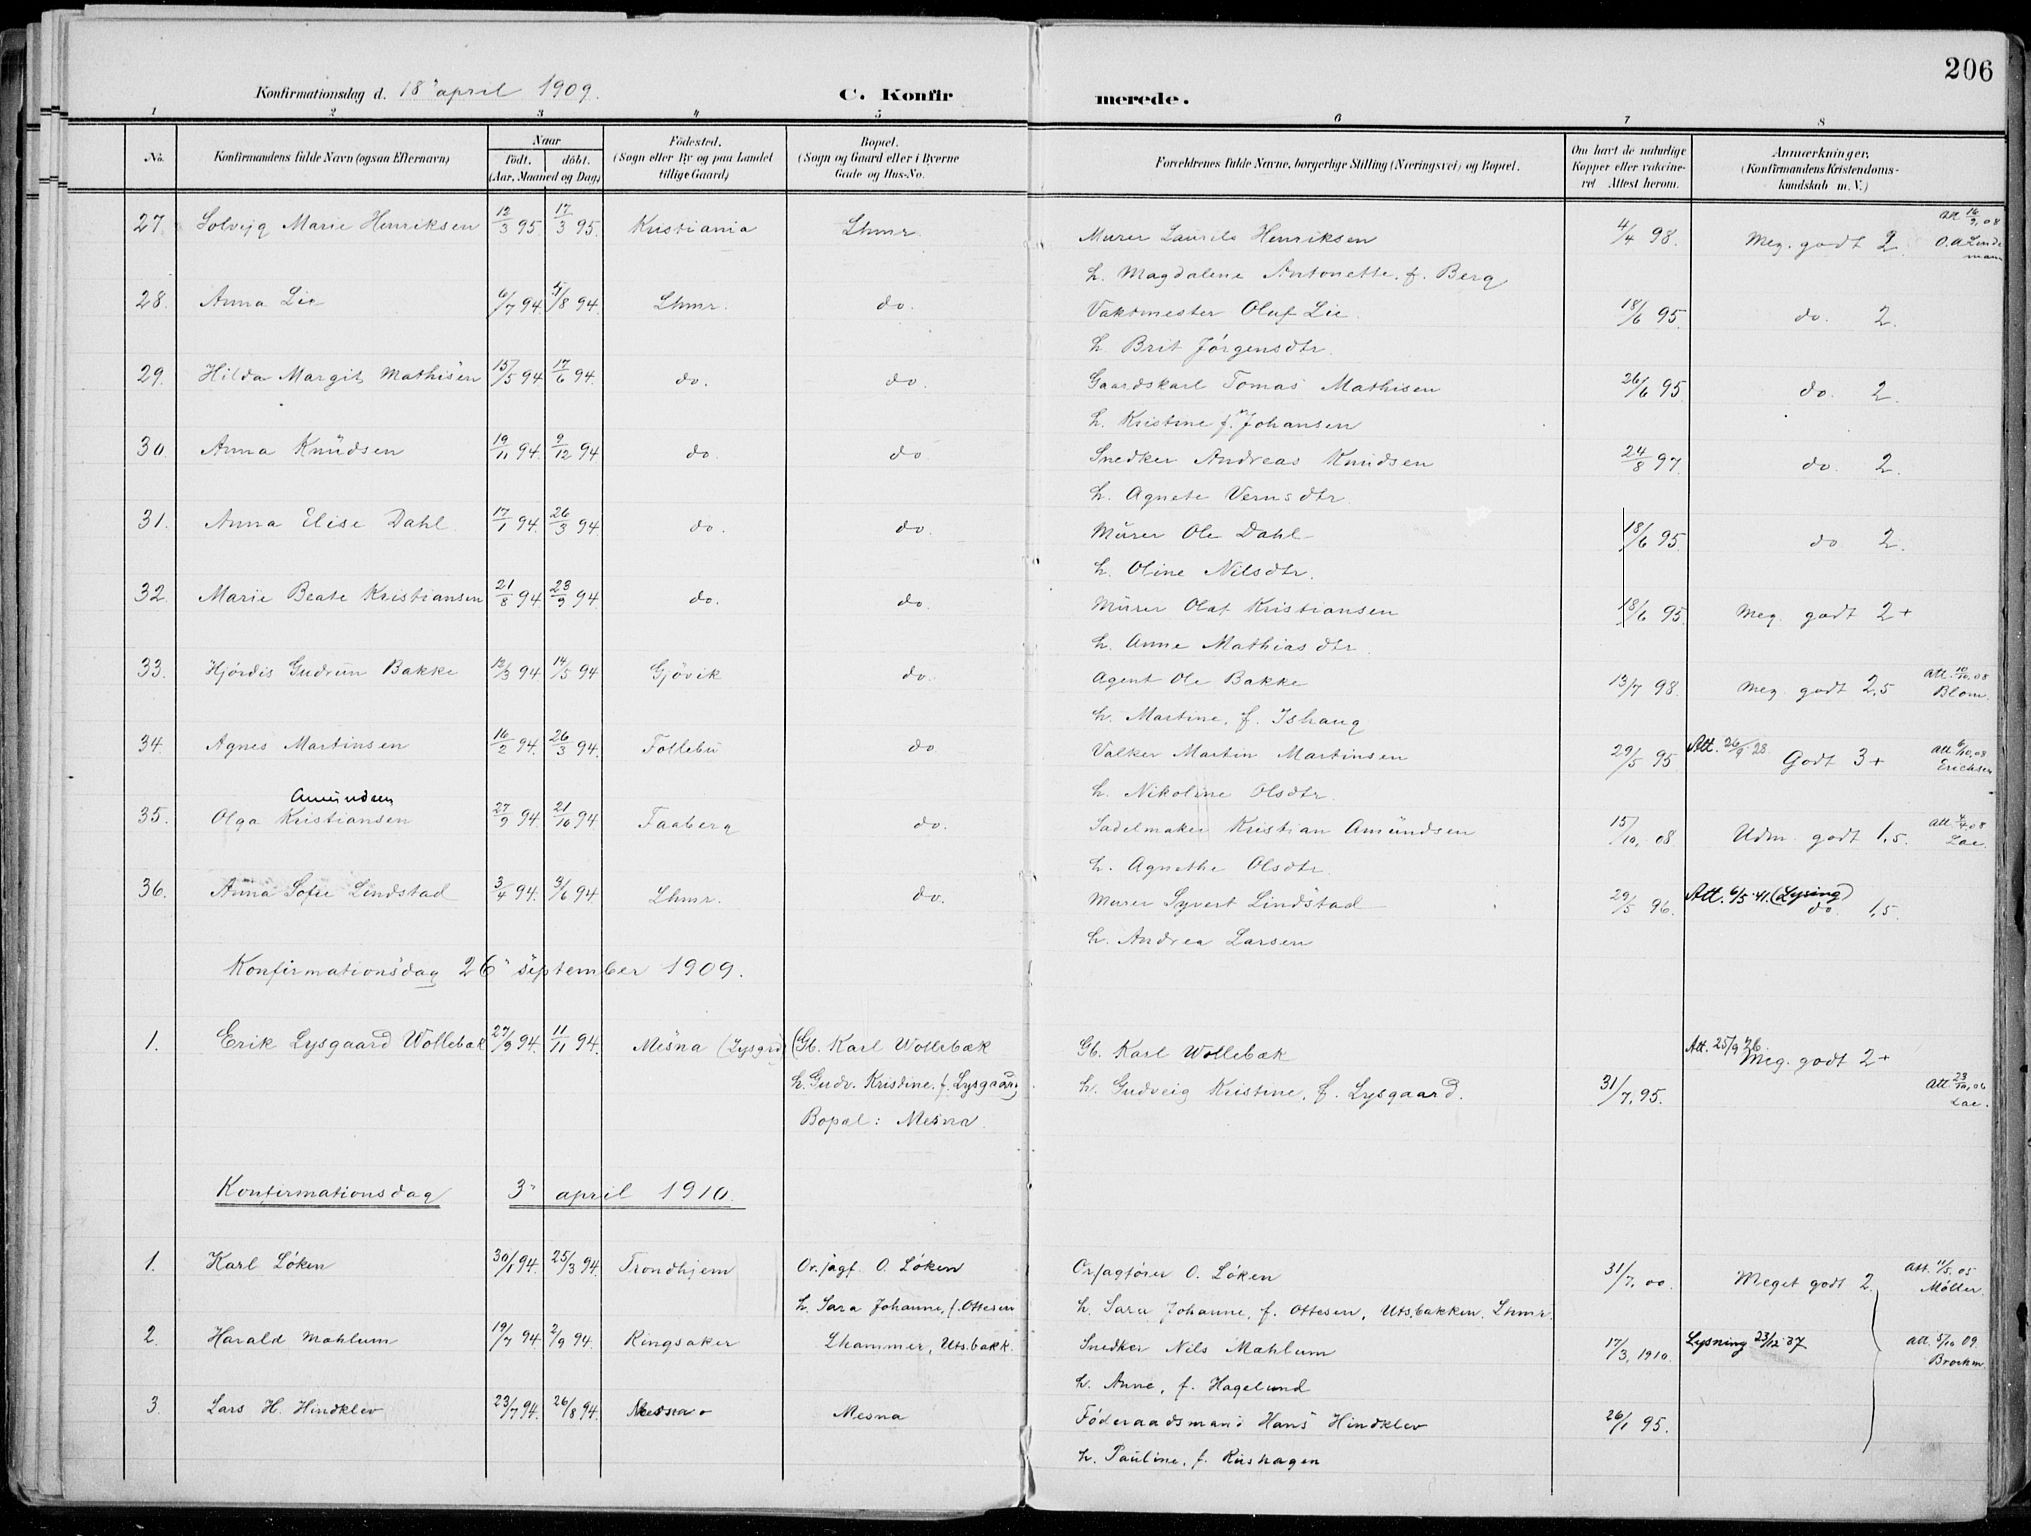 206
Konfirmationsdag d. 18 april 1909.
C. Konfirmerede.
1 2 3 4 5 6 7 8
No. Konfirmandens fulde Navn (ogsaa Efternavn) Naar født. døbt. (Aar, Maaned og Dag) Fødested. (Sogn eller By og paa Landet tillige Gaard) Bopæl. (Sogn og Gaard eller i Byerne Gade og Hus-No. Forældrenes fulde Navne, borgerlige Stilling (Næringsvei) og Bopæl. Om havt de naturlige Kopper eller vakcineret Attest herom. Anmærkninger, (Konfirmandens Kristendomskundskab m. V.)
27. Solveig Marie Henriksen 12/3 95 17/3 95. Kristiania Lhmr. Murer Laurits Henriksen 4/4 98. Meg. godt 2. Att 16/9, 08 O.A. Lindemann
h. Magdalene Antonette, f. Berg
28. Anna Lie 6/7 94 5/8 94 Lhmr. do. Vaktmester Olaf Lie. 18/6 95 do. 2.
h. Brit Jörgensdtr.
29. Hilda Margit Mathisen 15/5 94 17/6 94. do. do. Gaardskarl Tomas Mathisen 26/6 95 do. 2.
h. Kristine f. Johansen
30. Anna Knudsen 19/11 94. 9/12 94 do. do. Snedker Andreas Knudsen 24/8 97 do. 2.
h. Agnete Vernsdtr.
31. Anna Elise Dahl 17/1 94 26/3 94 do. do. Murer Ole Dahl 18/6 95. do 2.
h. Oline Nilsdtr.
32. Marie Beate Kristiansen 21/8 94 23/9 94 do. do. Murer Olaf Kristiansen 18/6 95. Meg. godt 2+
h. Anne Mathiasdtr.
33. Hjördis Gudrun Bakke 12/3 94 14/5 94 Gjövik do. Agent Ole Bakke 13/7 98. Meg. godt 2,5 Att. 10/10, 08 Blom.
h. Martine, f. Ishaug
34. Agnes Martinsen 16/2 94. 26/3 94. Follebu do Valker Martin Martinsen 29/5 95 Att. 26/9 28 Godt 3+ Att 6/10, 08 Erichsen
h. Nikoline Olsdtr.
Amundsen
35. Olga Kristiansen 27/9 94. 21/10 94 Faaberg do. Sadelmaker Kristian Amundsen 15/10, 08 Udm. godt 1,5. Att. 4/4, 08 Lae.
h. Agnethe Olsdtr.
36. Anna Sofie Lindstad 3/4 94. 3/6 94 Lhmr. do. Murer Syvert Lindstad 29/5 96. Att. 6/5 41. (Lysing) do. 1,5.
h. Andrea Larsen
Konfirmationsdag 26 september 1909.
1. Erik Lysgaard Wollebæk 27/9 94. 11/11 94. Mesna (Lysgrd) (Gb. Karl Wollebæk Gb. Karl Wollebæk Att. 25/9 26. Meg. godt 2+
h. Gudv. Kristine, f. Lysgaard) h. Gudveig Kristine, f. Lysgaard. 31/7, 95. Att. 23/10, 06 Lae.
Bopæl: Mesna.
Konfirmationsdag 3 april 1910.
1. Karl Löken 30/1 94. 25/3 94. Trondhjem Or.sagf. O. Löken Or.sagförer O. Löken 31/7, 00 Meget godt 2. Att. 11/5, 05 Möller.
h. Sara Johanne, f. Ottesen h. Sara Johanne, f. Ottesen, Uts.bakken. Lhmr.
2. Harald Mæhlum 19/7 94. 2/9 94. Ringsaker Lhammer, Uts.bakk. Snedker Nils Mæhlum 17/3, 1910. Lysning 23/12 37 Att. 5/10 09. Brochm.
h. Anne, f. Hagelund
3. Lars H. Hindklev 23/7 94. 26/8 94. Mesna Mesna Föderaadsmand Hans Hindklev 26/1 95.
h. Pauline, f. Rushagen